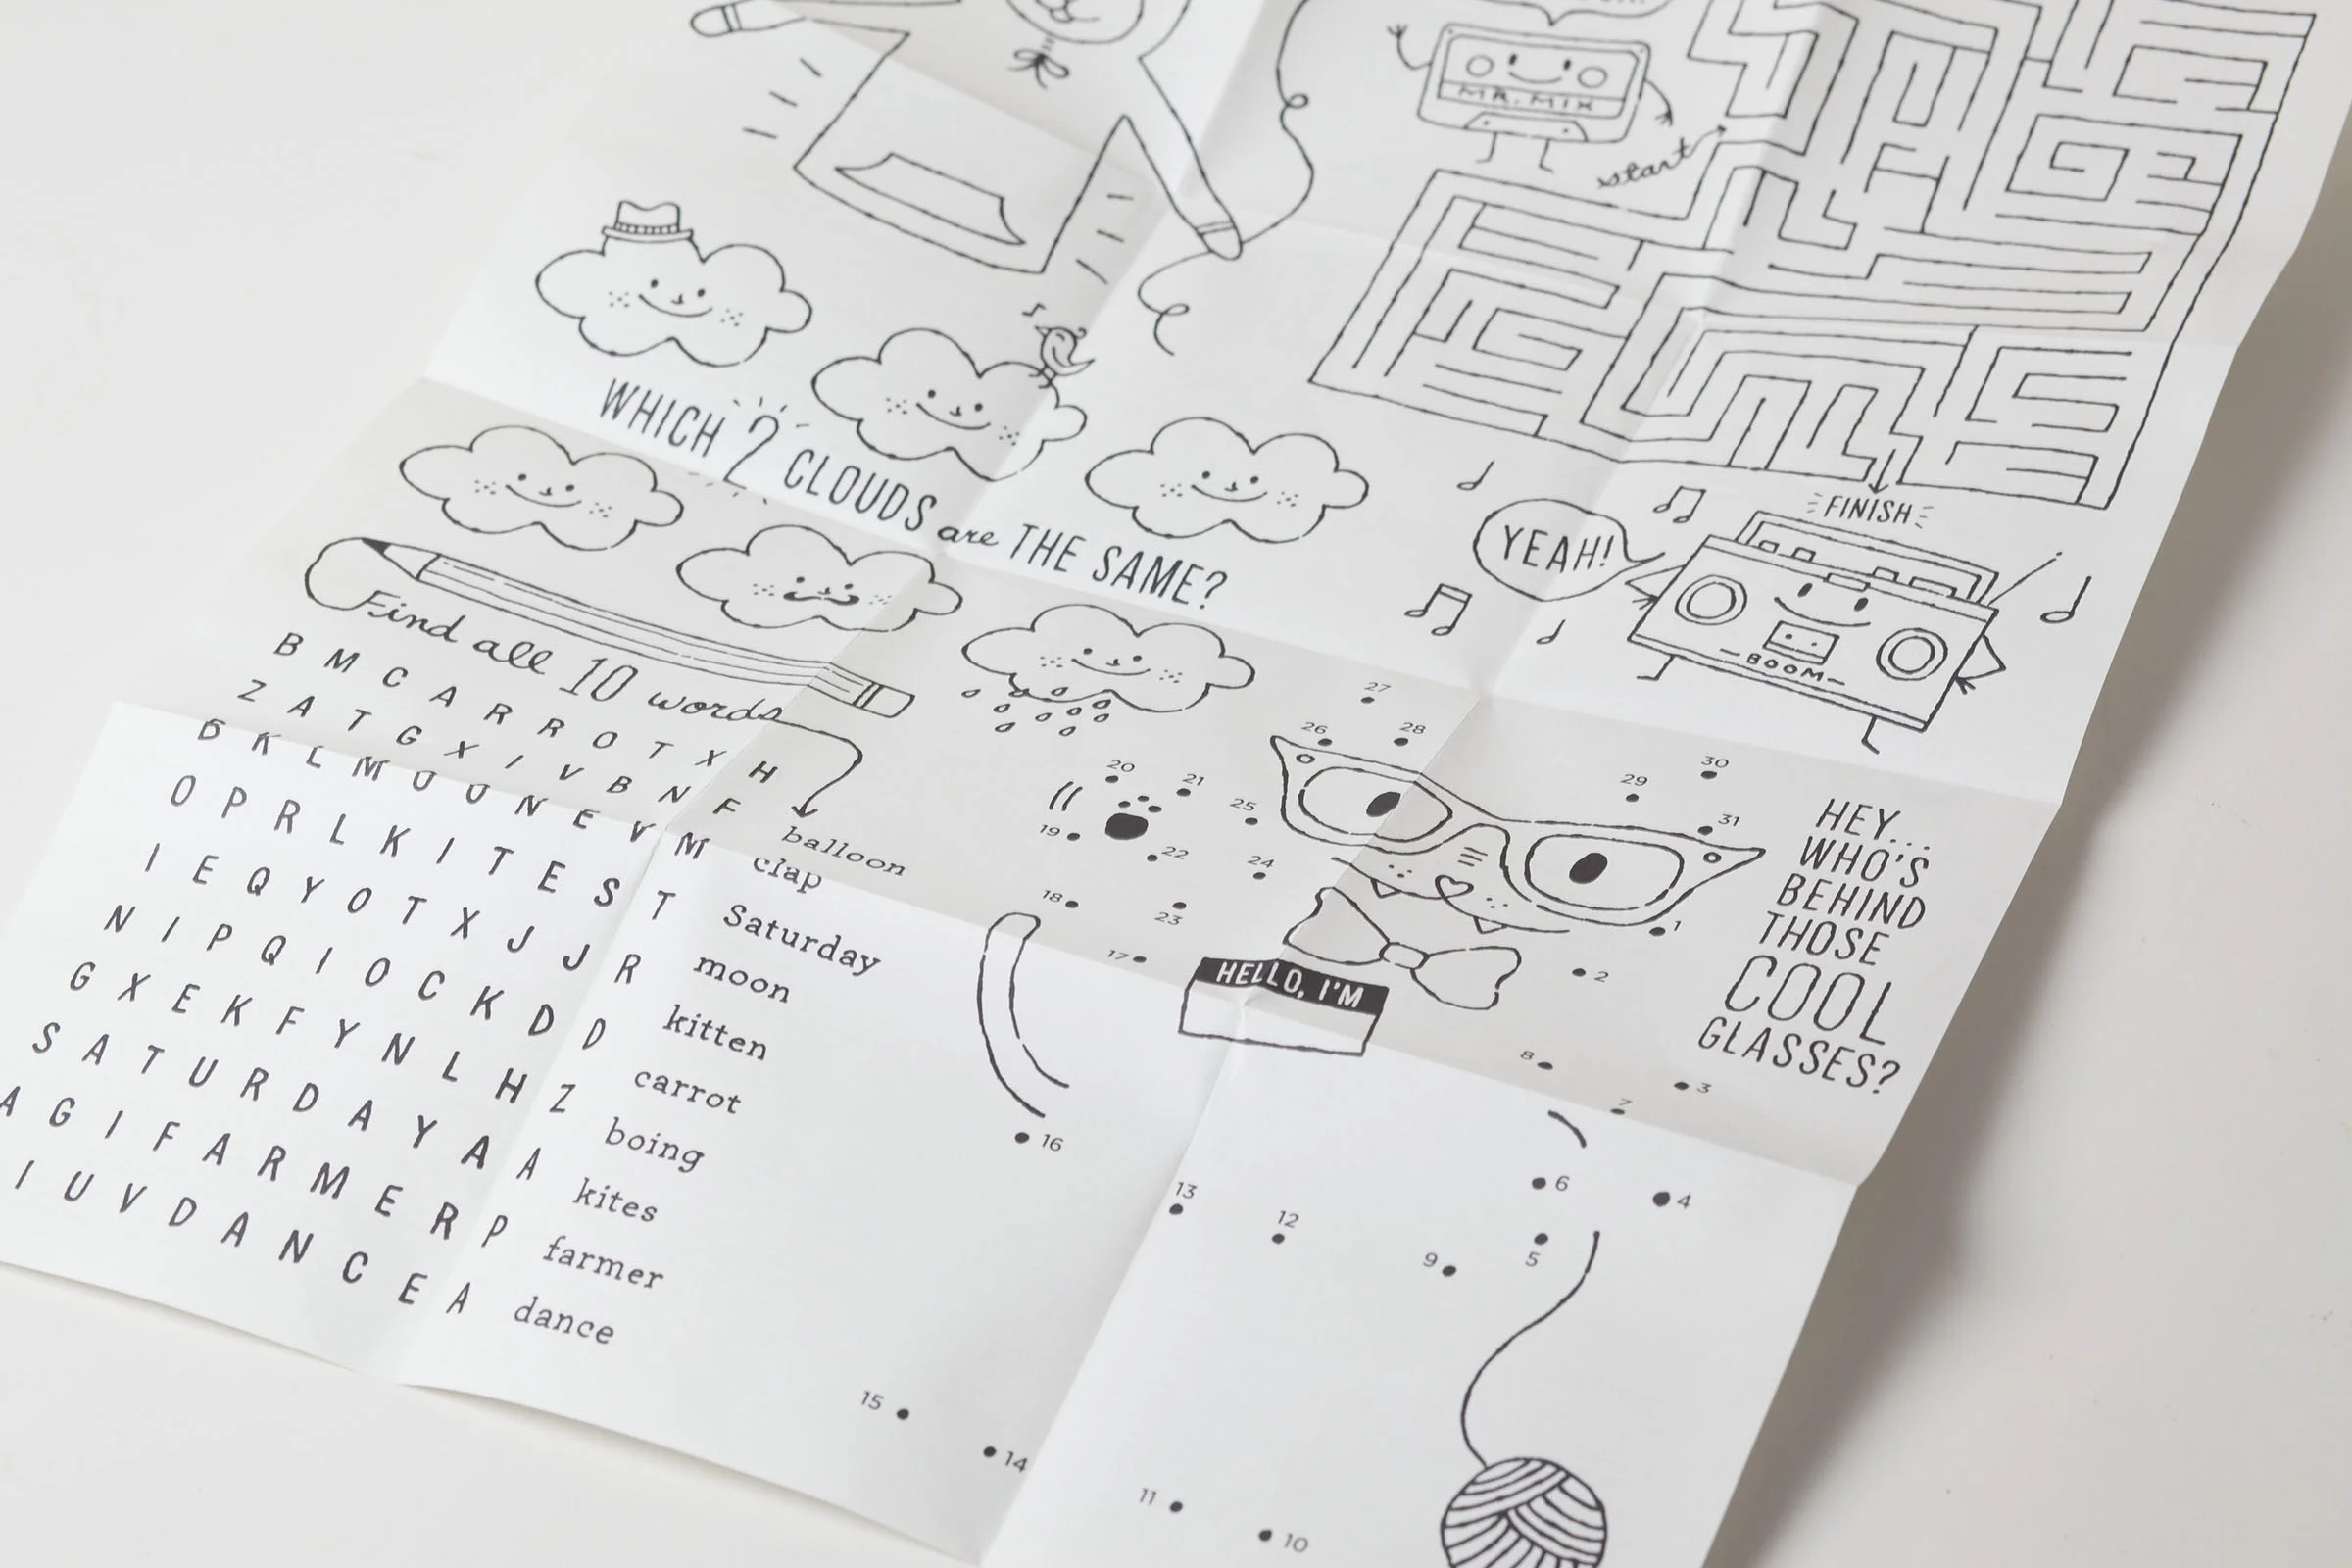 MR. MIX
start
WHICH 2 CLOUDS are THE SAME?
FINISH
YEAH!
BOOM
Find all 10 words
B M C A R R O T X H
Z A T G X I V B N F
B K L M O O N E V M
O P R L K I T E S T
I E Q Y O T X J J R
N I P Q I O C K D D
G X E K F Y N L H Z
S A T U R D A Y A A
A G I F A R M E R P
I U V D A N C E A
balloon
clap
Saturday
moon
kitten
carrot
boing
kites
farmer
dance
HEY...
WHO'S
BEHIND
THOSE
COOL
GLASSES?
HELLO, I'M
27
26
28
30
29
31
20
21
25
19
22
24
18
23
17
1
2
8
3
7
16
6
4
13
12
5
9
15
14
11
10